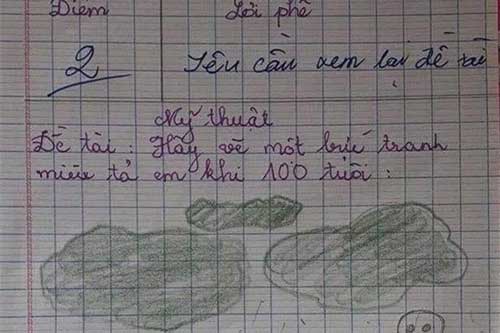 Điểm Lời phê
2 Yêu cầu xem lại đề tài
Mỹ thuật
Đề tài : Hãy vẽ một bức tranh
miêu tả em khi 100 tuổi :